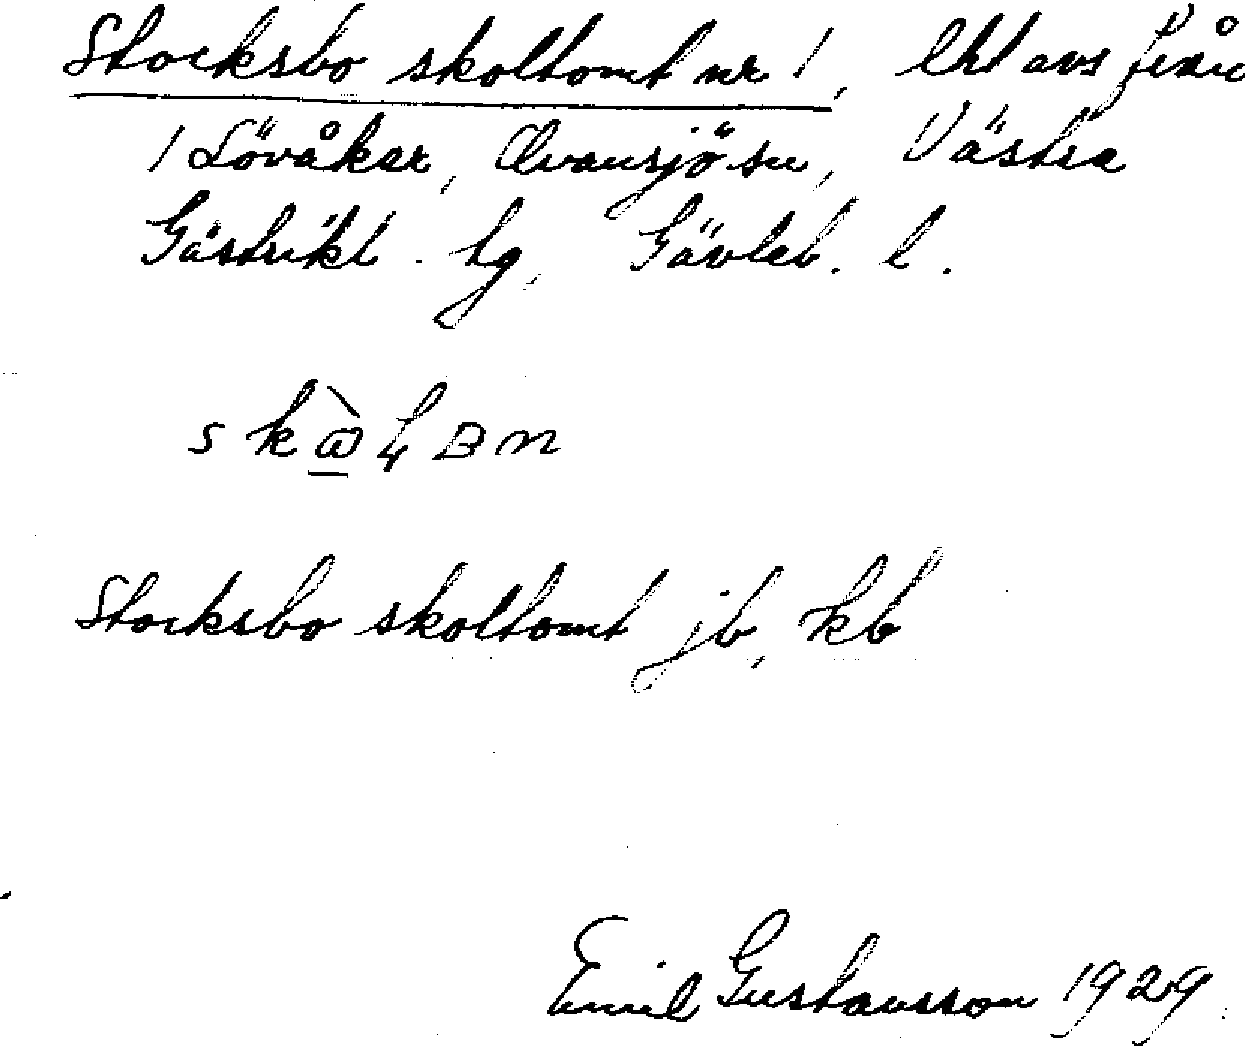 Stocksbo skoltomt nr 1, lht avs från
1 Lövåker, Ovansjö sn, Västra
Gästrikl. tg, Gävleb. l.
Stocksbo skoltomt jb, kb
Emil Gustavsson 1929